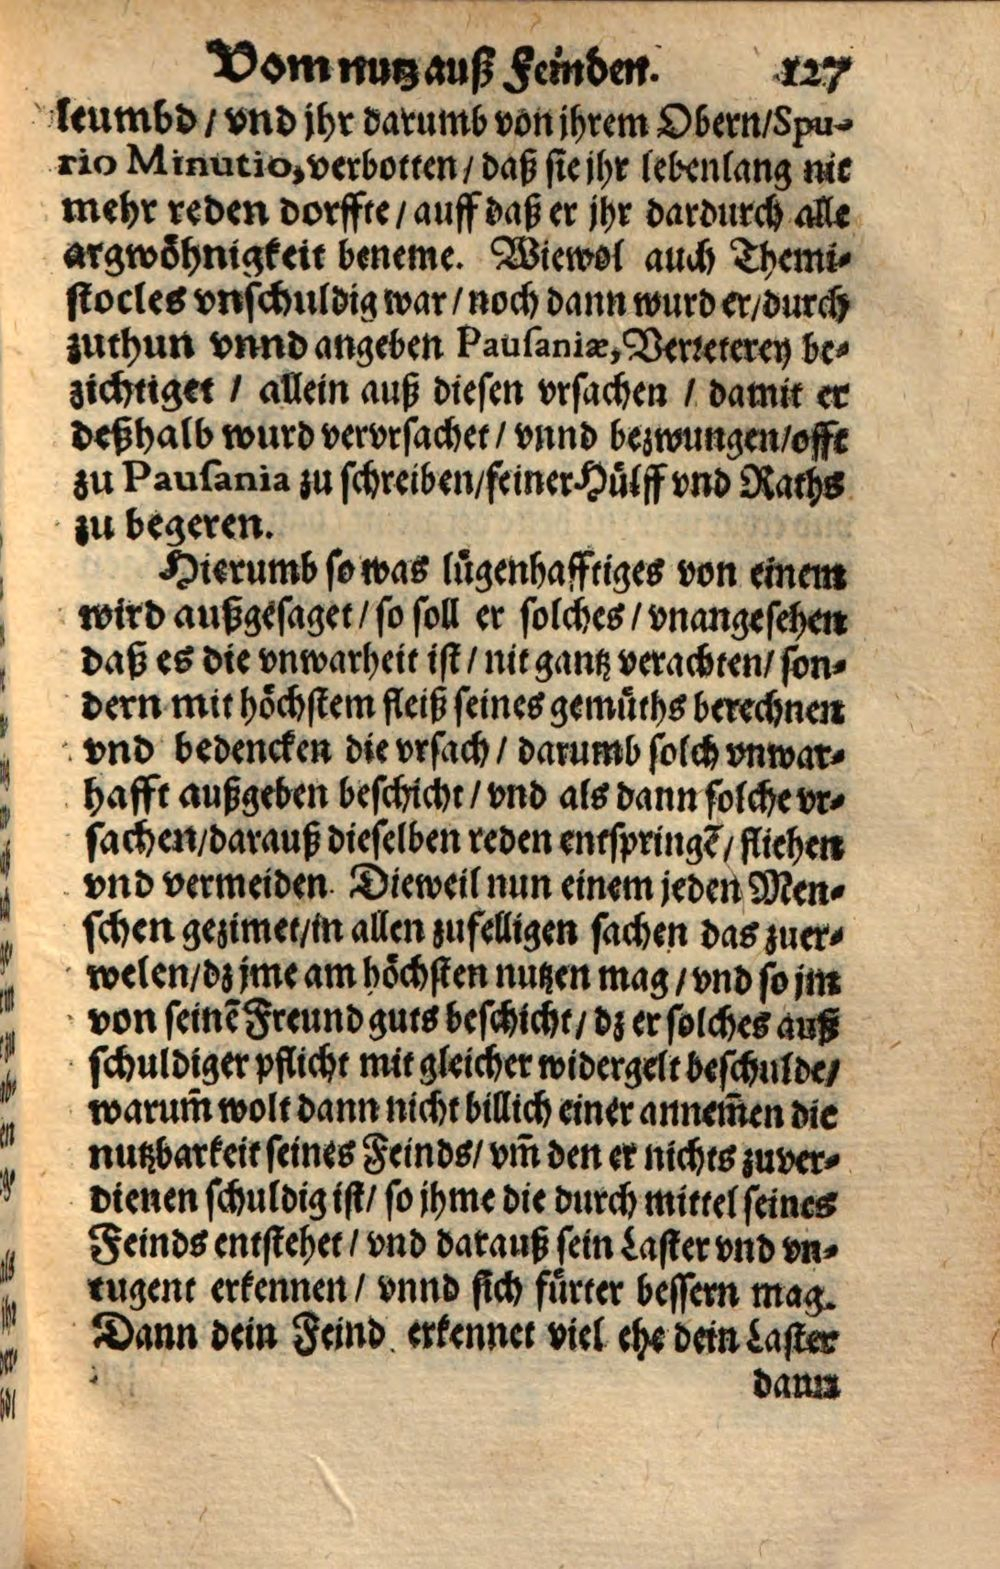 Vom nutz auß Feinden. 127
leumbd / vnd jhr darumb von jhrem Obern/Spu-
rio Minutio, verbotten / daß sie jhr lebenlang nit
mehr reden dorffte / auff daß er jhr dardurch alle
argwöhnigkeit beneme. Wiewol auch Themi-
stocles vnschuldig war / noch dann wurd er/durch
zuthun vnnd angeben Pausaniæ, Verreterey be-
zichtiget / allein auß diesen vrsachen / damit er
deßhalb wurd vervrsachet / vnnd bezwungen/offt
zu Pausania zu schreiben/seiner Hülff vnd Raths
zu begeren.
Hierumb so was lügenhafftiges von einem
wird außgesaget / so soll er solches / vnangesehen
daß es die vnwarheit ist / nit gantz verachten/ son-
dern mit höchstem fleiß seines gemüths berechnen
vnd bedencken die vrsach / darumb solch vnwar-
hafft außgeben beschicht / vnd als dann solche vr-
sachen/darauß dieselben reden entspringē / fliehen
vnd vermeiden. Dieweil nun einem jeden Men-
schen gezimet/in allen zufelligen sachen das zuer-
welen/dz jme am höchsten nutzen mag / vnd so jm
von seinē Freund guts beschicht / dz er solches auß
schuldiger pflicht mit gleicher widergelt beschulde/
warum̄ wolt dann nicht billich einer annem̄en die
nutzbarkeit seines Feinds/ vm̄ den er nichts zuver-
dienen schuldig ist/ so jhme die durch mittel seines
Feinds entstehet / vnd darauß sein Laster vnd vn-
tugent erkennen / vnnd sich fürter bessern mag.
Dann dein Feind erkennet viel ehe dein Laster
dann